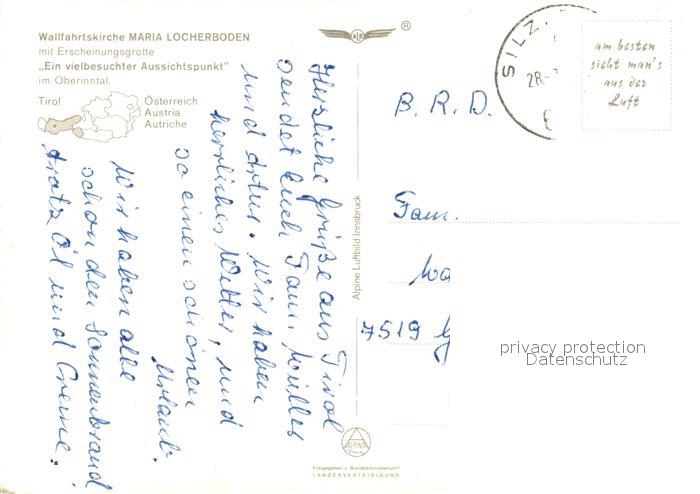 Wallfahrtskirche MARIA LOCHERBODEN
mit Erscheinungsgrotte
„Ein vielbesuchter Aussichtspunkt"
im Oberinntal.
Tirol
Österreich
Austria
Autriche
Herzliche Grüße aus Tirol
sendet Euch Fam. Müller
und Artur. Wir haben
herrliches Wetter, und
so einen schönen
Urlaub.
Wir haben alle
schon den Sonnenbrand
trotz Öl und Creme.
Alpine Luftbild Innsbruck
ALPINE
Freigegeben v. Bundesministerium f.
LANDESVERTEIDIGUNG
®
SILZ
28.
am besten
sieht man's
aus der
Luft
B. R. D.
Fam.
Wa
7519 G
privacy protection
Datenschutz